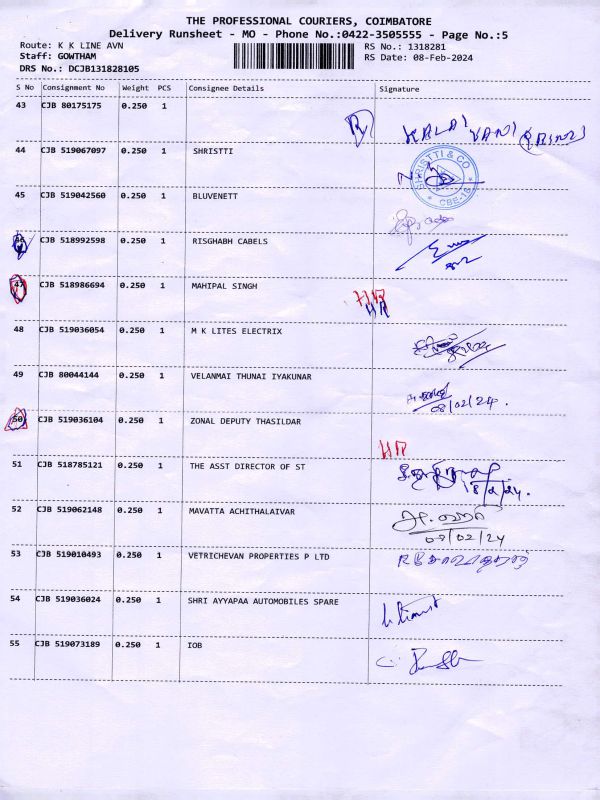 THE PROFESSIONAL COURIERS, COIMBATORE
Delivery Runsheet - MO - Phone No.:0422-3505555 - Page No.:5
Route: K K LINE AVN
Staff: GOWTHAM
DRS No.: DCJB131828105
RS No.: 1318281
RS Date: 08-Feb-2024
S No Consignment No Weight PCS Consignee Details Signature
43 CJB 80175175 0.250 1
KALAI VANI
44 CJB 519067097 0.250 1 SHRISTTI
SHRISTTI & CO
CBE-18
45 CJB 519042560 0.250 1 BLUVENETT
46 CJB 518992598 0.250 1 RISGHABH CABELS
47 CJB 518986694 0.250 1 MAHIPAL SINGH
48 CJB 519036054 0.250 1 M K LITES ELECTRIX
49 CJB 80044144 0.250 1 VELANMAI THUNAI IYAKUNAR
08/02/24.
50 CJB 519036104 0.250 1 ZONAL DEPUTY THASILDAR
51 CJB 518785121 0.250 1 THE ASST DIRECTOR OF ST
8/2/24.
52 CJB 519062148 0.250 1 MAVATTA ACHITHALAIVAR
08/02/24
53 CJB 519010493 0.250 1 VETRICHEVAN PROPERTIES P LTD
54 CJB 519036024 0.250 1 SHRI AYYAPAA AUTOMOBILES SPARE
55 CJB 519073189 0.250 1 IOB